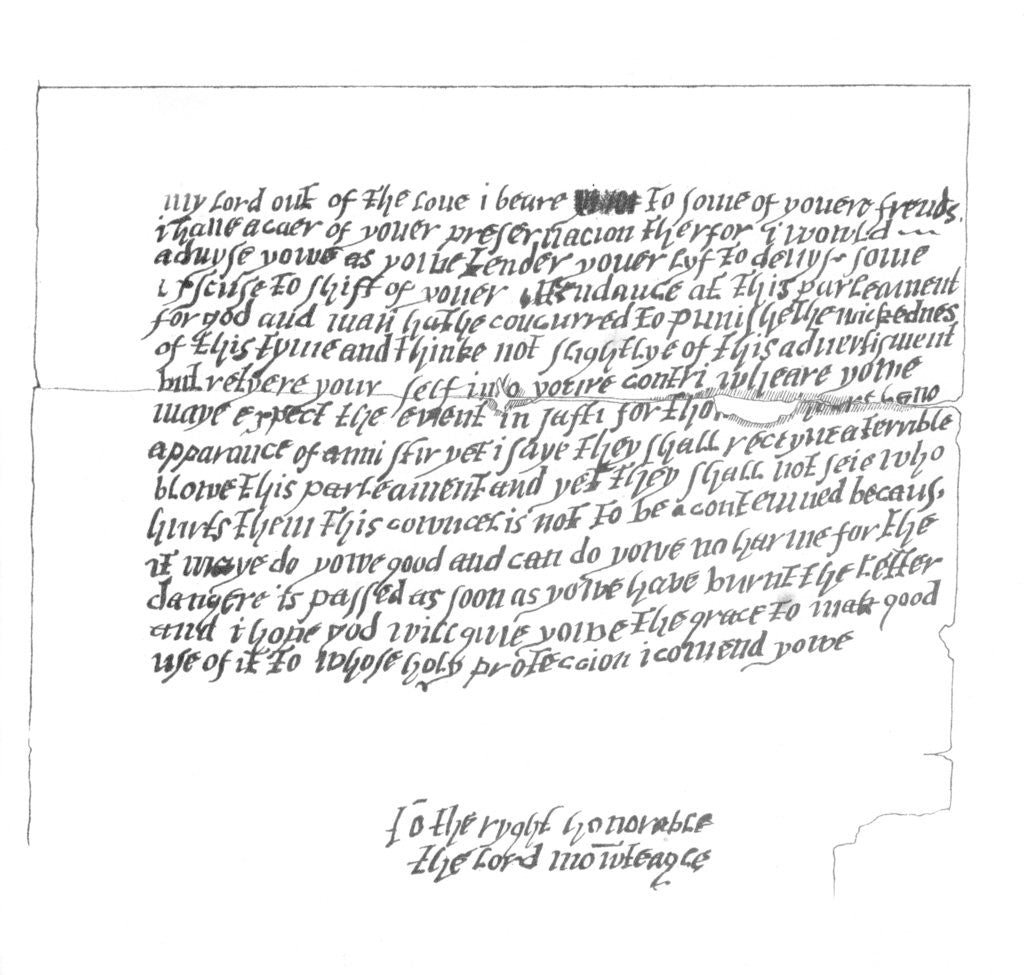 my lord out of the loue i beare to some of youere frends
i haue a caer of youer preseruacion therfor i would
aduyse yowe as yowe tender youer lyf to deuys some
exscuse to shift of youer attendance at this parleament
for god and man hathe concurred to punishe the wickednes
of this tyme and thinke not slightlye of this aduertisment
but retyere youre self into youre contri wheare yowe
maye expect the euent in safti for thowghe theare be no
apparance of anni stir yet i saye they shall receyue a terrible
blowe this parleament and yet they shall not seie who
hurts them this cowncel is not to be contemned becaus
it maye do yowe good and can do yowe no harme for the
dangere is passed as soon as yowe have burnt the letter
and i hope god will giue yowe the grace to mak good
use of it to whose holy proteccion i comend yowe
to the ryght honorable
the lord mowteagle